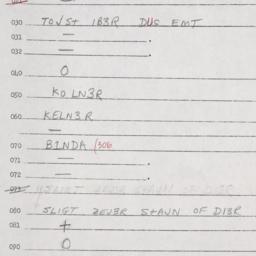 030 TOVST 1B3R DUS EMT
031 — .
032 — .
040 O
050 KOLN3R
060 KELN3R
—
070 B1NDA (306
071 — .
072 — .
080 SLIGT 2EVER STAUN OF D1BR
081 +
090 O